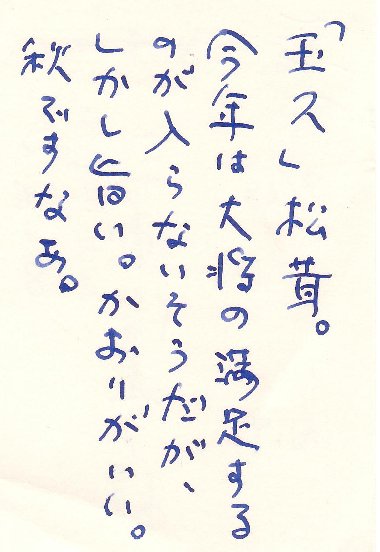 「玉久」松茸。
今年は大将の満足する
のが入らないそうだが、
しかし旨い。かおりがいい。
秋ですなあ。